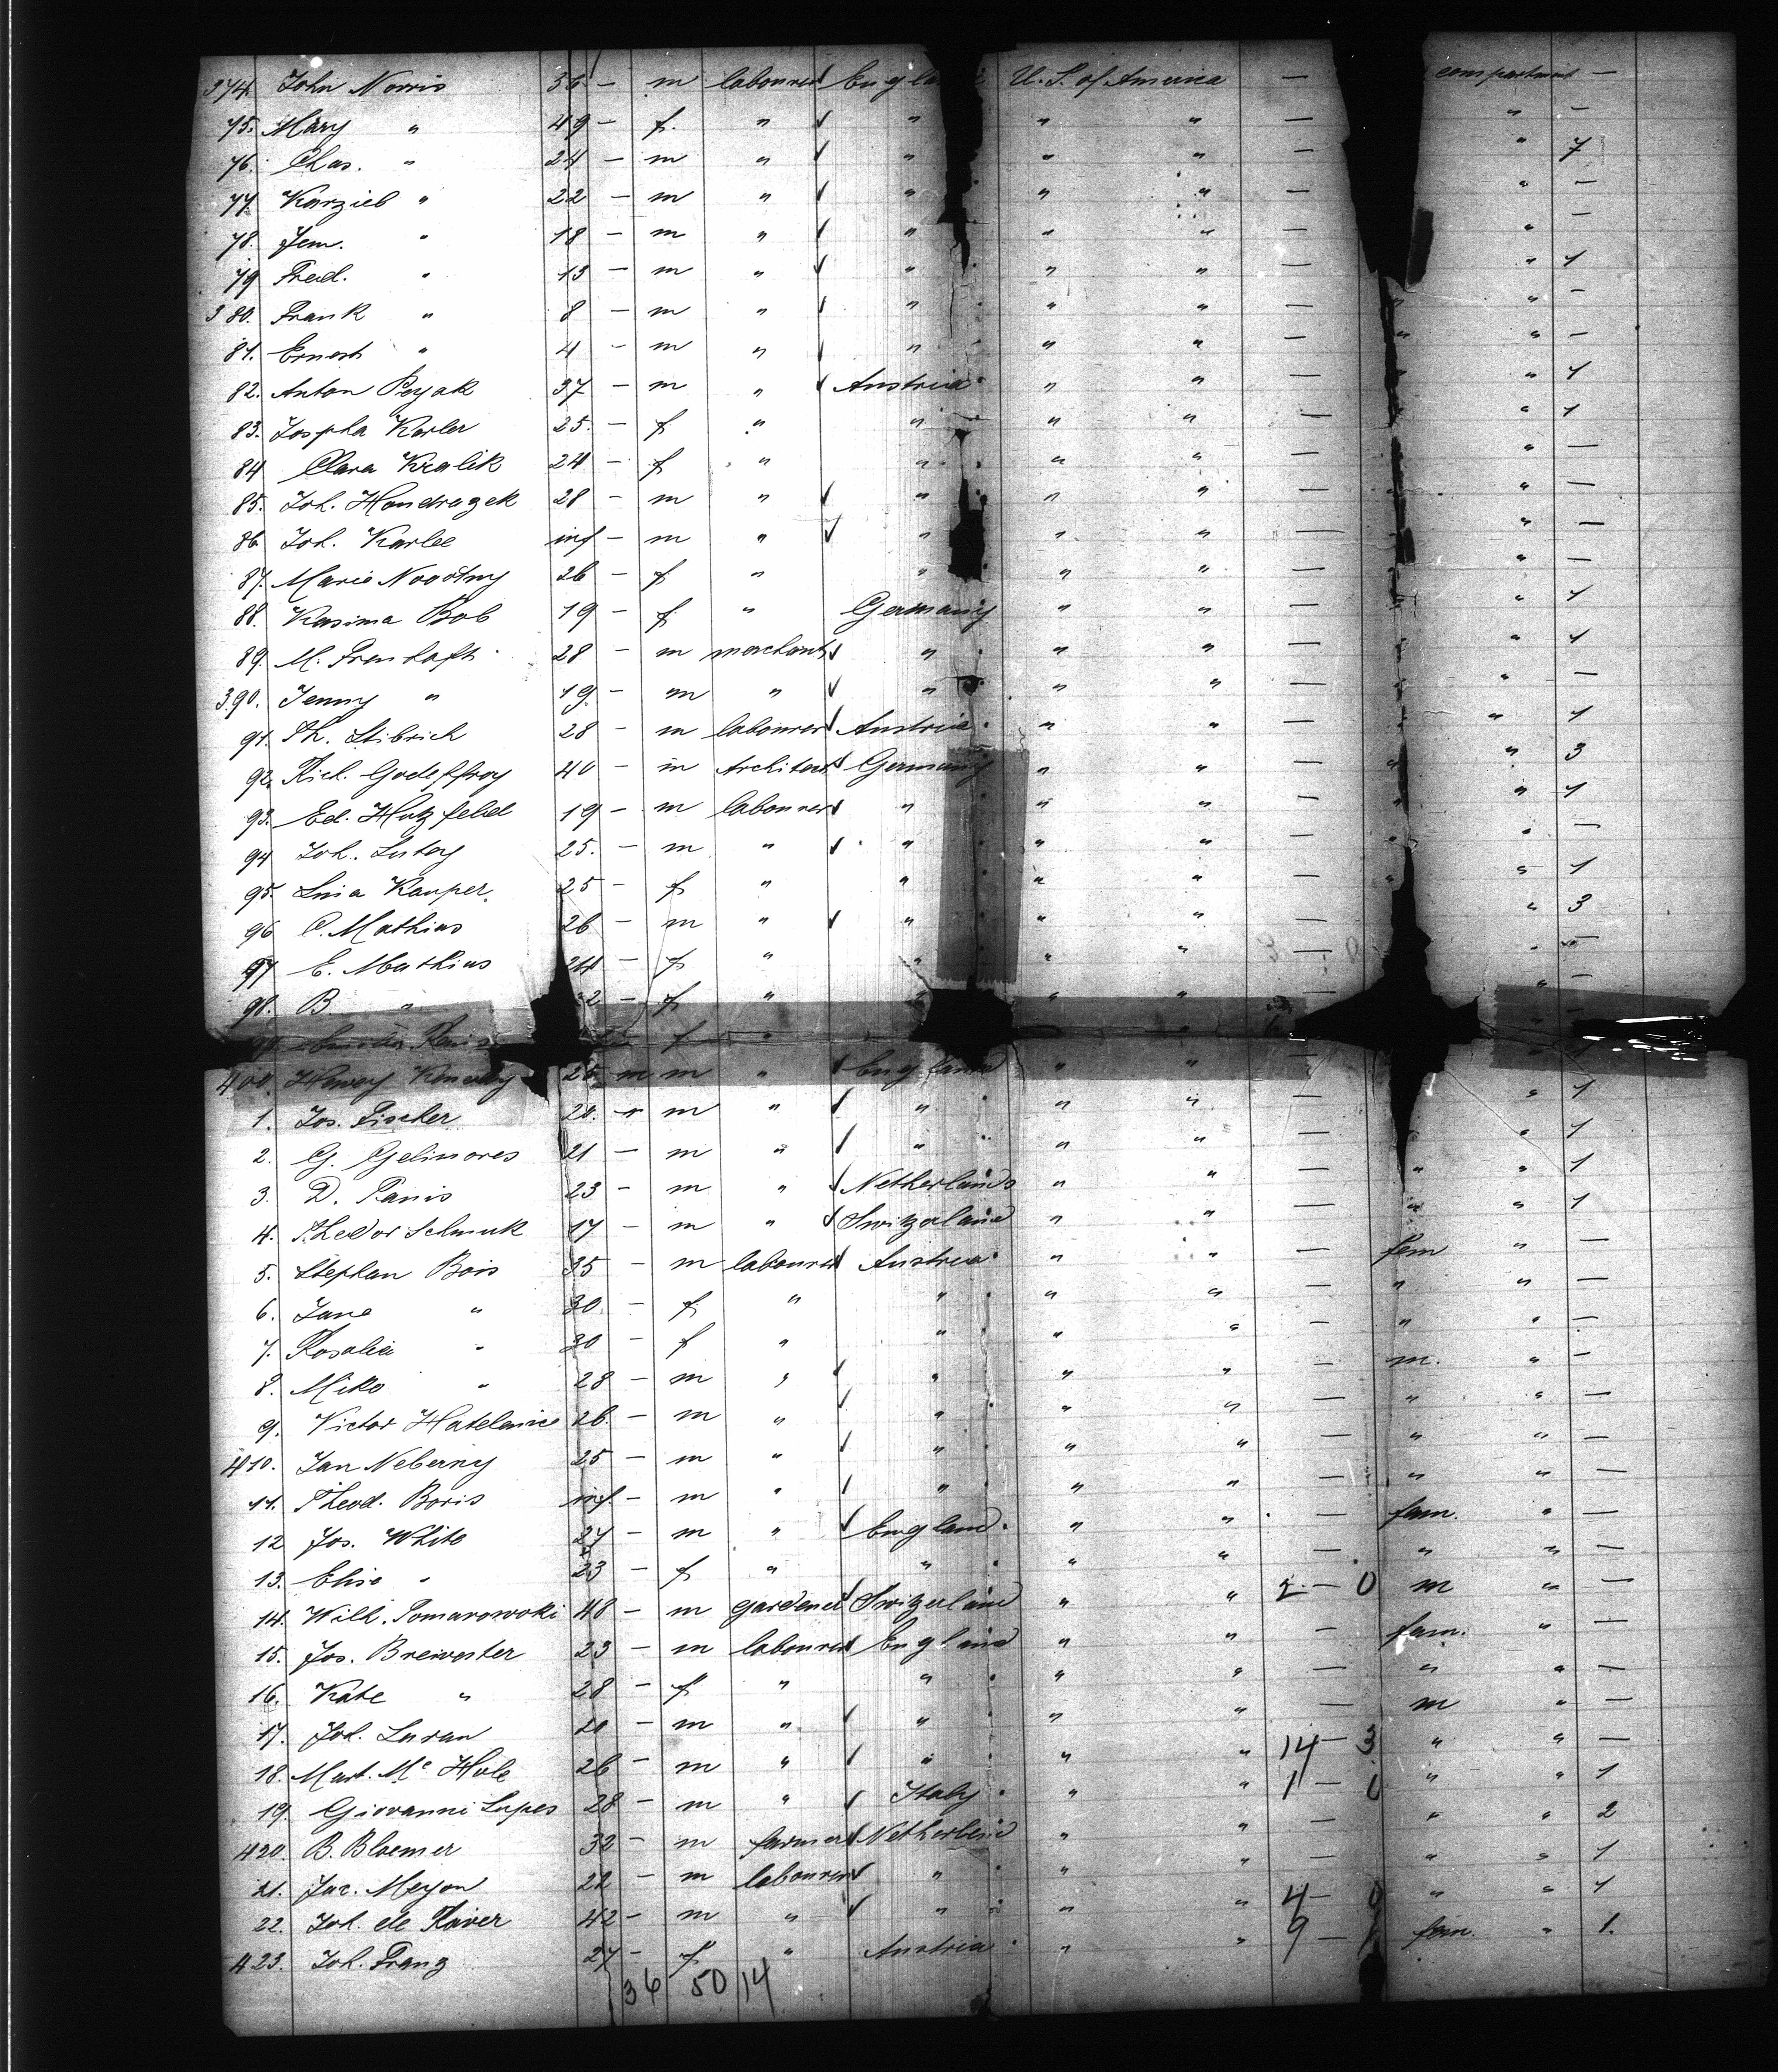 374. John Norris 36 – m labourer England U. S. of America — compartment —
75. Mary " 49 – f. " " " " — " —
76. Chas. " 24 – m " " " " — " 7
77. Karzieb " 22 – m " " " " — " —
78. Jem. " 18 – m " " " " — " —
79 Fred. " 13 – m " " " " — " 1
380. Frank " 8 – m " " " " — " " —
81. Ernest " 4 – m " " " " — " " —
82. Anton Peyak 37 – m " Austria " " — " " 1
83. Jospha Karler 25. – f " " " " — " " 1
84 Clara Kralik 24 – f " " " " — " —
85. Joh. Handragek 28 – m " " " " — " —
86. Joh. Karlee inf – m " " " " — " —
87. Marie Novotny 26 – f " " " " — " —
88. Kasima Bob 19 – f. " Germany " " — " 1
89. M. Frenhaft 28 – m merchant " " " — " " 1
390. Jenny " 19. – m " " " " — " " —
91. Th. Stibrich 28 – m labourer Austria " " — " " 1
92. Rich. Godeffroy 40 – m Architect Germany " " — " " 3
93. Ed. Hatzfeld 19 – m labourer " " " — " " 1
94 Joh. Lutey 25. – m " " " " — " " —
95. Lina Kauper. 25 – f " " " " — " " 1
96 C. Mathias 26 – m " " " " — " 3
97 E. Mathias 24 – f " " " " — " —
98. B " 32 – f " " " " — " —
f "
400. 25 m " England " " — " 1
1. Jos. Fischer 20. – m " " " " — " 1
2. G. Gelinores 21 – m " " " " — " 1
3. D. Panis 23 – m " Netherlands " " — " " 1
4. Thedor Schmuk 17 – m " Switzerland " " — " " 1
5. Stephan Bois 35 – m labourer Austria " " — fem " —
6. Jane " 30 – f " " " " — " " —
7. Rosalia " 30 – f " " " " — " " —
8. Miko " 28 – m " " " " — m. " –
9. Victor Hatelanice 26. – m " " " " — " " —
410. Jan Neberny 25 – m " " " " — " " —
11. Theod. Boris inf. – m " " " " — " " —
12 Jos. White 27 – m " England " " — fam. " —
13. Elise " 23 – f " " " " — " " —
14. Wilh. Pomarowski 48 – m gardener Switzerland " " 2 – 0 m " —
15. Jos. Brewester 23 – m labourer England " " — fam. " —
16. Kate " 28 – f " " " " — " " —
17. Joh. Luran 20 – m " " " " — m " —
18. Mart. Mc Hole 26 – m " " " " 14 – 3 " " —
19. Giovanni Lupes 28 – m " Italy " " 1 – 0 " " 1
420. B. Bloemer 32 – m farmer Netherland " " — " " 2
21. Jac. Meyon 22 – m labourer " " " — " " 1
22. Joh. de Raver 42 – m " " " " 4 – 0 " " 1
423. Joh. Franz 27 – f " Austria " " 9 – 1 fem. " 1.
36 50 14